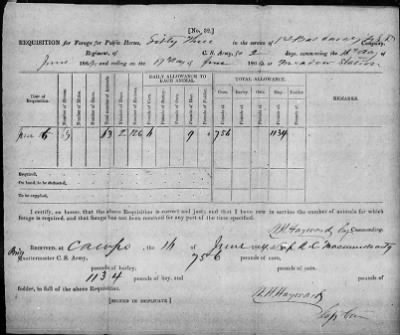 [No. 32.]
REQUISITION for Forage for Public Horses, Sixty Three in the service of 1st Company,
Regiment, of C. S. Army, for 2 days, commencing the 16 day of
June 186 and ending on the 17 day of June 186 at Meadow Station
DAILY ALLOWANCE TO EACH ANIMAL. TOTAL ALLOWANCE.
Date of Requisition. Number of Horses. Number of Mules. Number of Oxen. Total number of Animals. Number of Days. Number of Rations. Pounds of Corn. Pounds of Barley. Pounds of Oats. Pounds of Hay. Pounds of Fodder. Corn. Barley. Oats. Hay. Fodder. REMARKS.
June 16 63 63 2 126 6 9 756 1134
Required,
On hand, to be deducted,
To be supplied,
I certify, on honor, that the above Requisition is correct and just; and that I have now in service the number of animals for which
forage is required, and that forage has not been received for any part of the time specified.
N. Hayward Commanding.
RECEIVED, at Camp the 16 of June 186 of
Quartermaster C. S. Army, 756 pounds of corn,
pounds of barley,
1134 pounds of hay, and pounds of
fodder, in full of the above Requisition.
[SIGNED IN DUPLICATE.]
N. Hayward